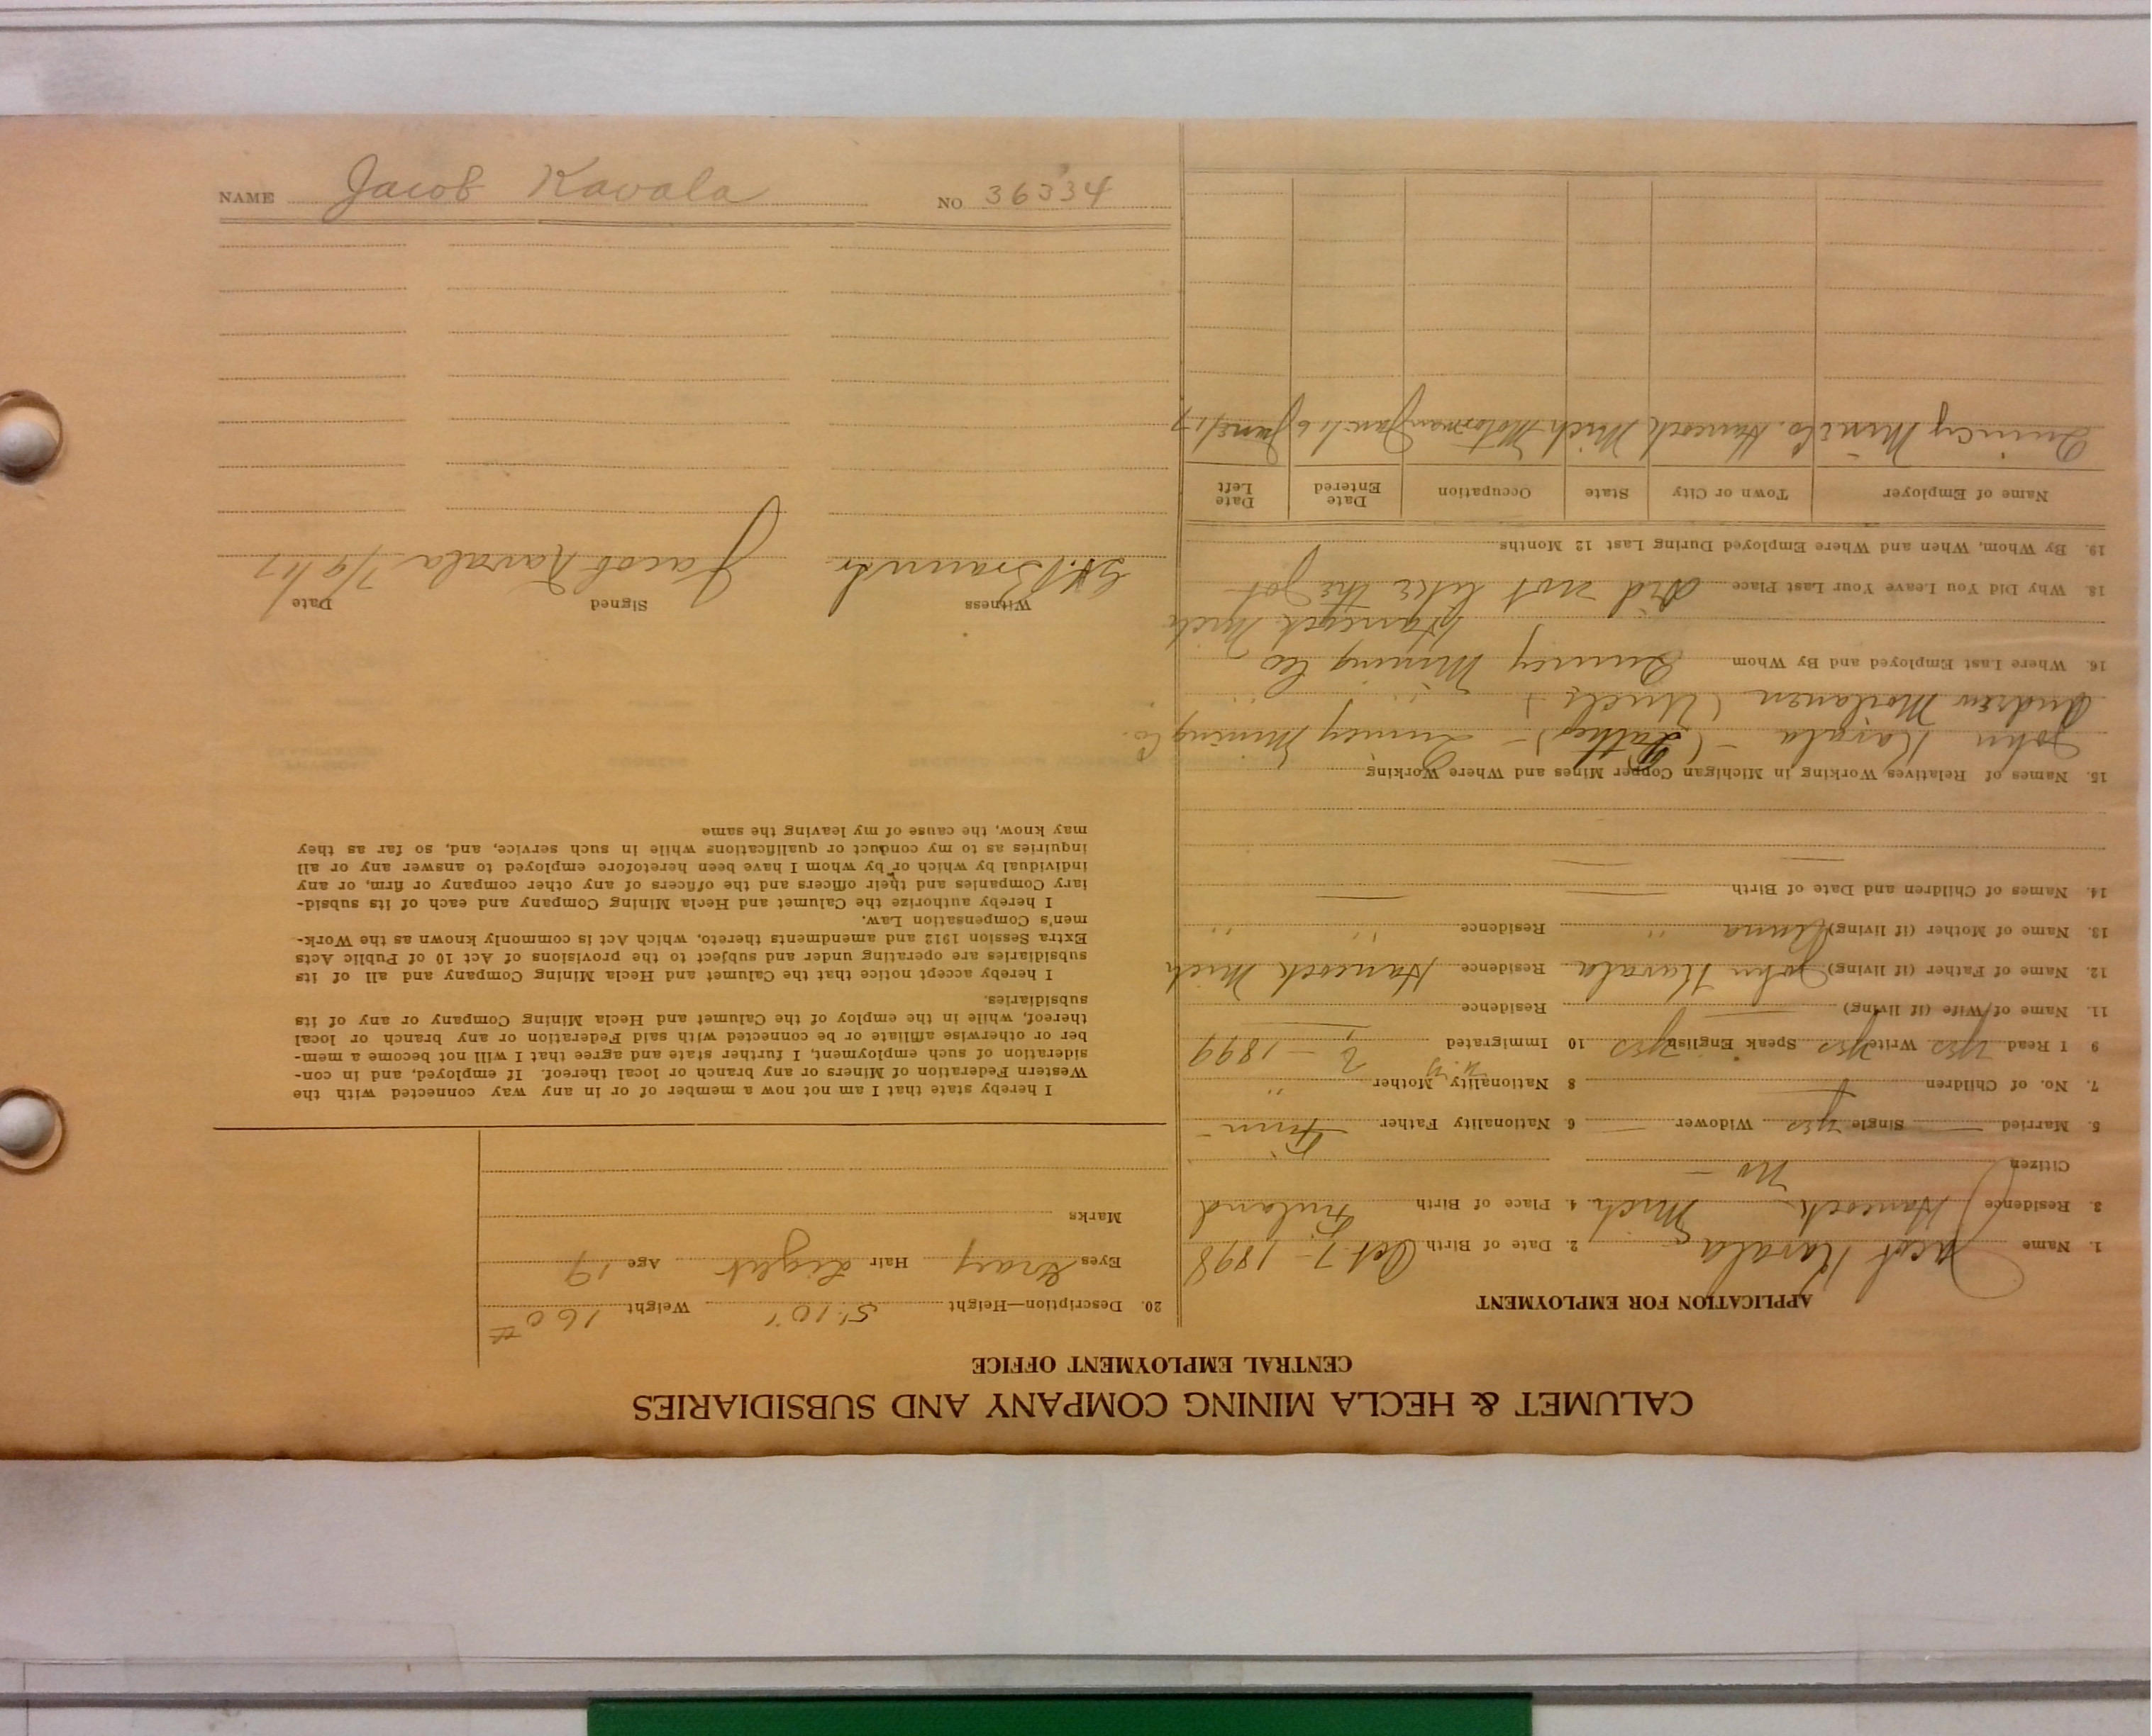 CALUMET & HECLA MINING COMPANY AND SUBSIDIARIES
CENTRAL EMPLOYMENT OFFICE
APPLICATION FOR EMPLOYMENT
1. Name Jacob Kavala 2. Date of Birth Oct 7 - 1898
3. Residence Hancock Mich 4. Place of Birth Finland
Citizen No -
5. Married — Single yes Widower — 6. Nationality Father Finn -
7. No. of Children — 8 Nationality Mother "
9 I Read yes Write yes Speak English yes 10 Immigrated - 1899
11. Name of Wife (if living) — Residence —
12. Name of Father (if living) John Kavala Residence Hancock Mich
13. Name of Mother (if living) Anna " Residence " "
14. Names of Children and Date of Birth
15. Names of Relatives Working in Michigan Copper Mines and Where Working
John Kavala - (Father) - Quincy Mining Co.
Andrew Moilanen (Uncle) " "
16. Where Last Employed and By Whom Quincy Mining Co
Hancock Mich
18. Why Did You Leave Your Last Place Did not like the job
19. By Whom, When and Where Employed During Last 12 Months
Name of Employer Town or City State Occupation Date Entered Date Left
Quincy Min. Co. Hancock Mich Motorman Jan. 16 June/17
20. Description—Height 5' 10" Weight 160 #
Eyes Gray Hair Light Age 19
Marks
I hereby state that I am not now a member of or in any way connected with the
Western Federation of Miners or any branch or local thereof. If employed, and in con-
sideration of such employment, I further state and agree that I will not become a mem-
ber or otherwise affiliate or be connected with said Federation or any branch or local
thereof, while in the employ of the Calumet and Hecla Mining Company or any of its
subsidiaries.
I hereby accept notice that the Calumet and Hecla Mining Company and all of its
subsidiaries are operating under and subject to the provisions of Act 10 of Public Acts
Extra Session 1912 and amendments thereto, which Act is commonly known as the Work-
men's Compensation Law.
I hereby authorize the Calumet and Hecla Mining Company and each of its subsid-
iary Companies and their officers and the officers of any other company or firm, or any
individual by which or by whom I have been heretofore employed to answer any or all
inquiries as to my conduct or qualifications while in such service, and, so far as they
may know, the cause of my leaving the same
Witness Signed Date
Jacob Kavala 7/9/17
NAME Jacob Kavala NO 36334